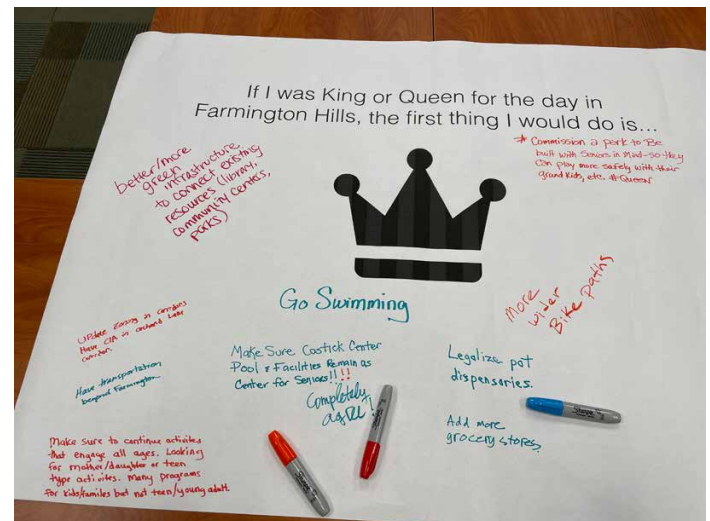 If I was King or Queen for the day in
Farmington Hills, the first thing I would do is...
better/more
green
infrastructure
to connect existing
resources (library,
community centers,
parks)
* Commission a park to Be
built with Seniors in Mind-so they
can play more safely with their
grand kids, etc. #Queen
More
wider
Bike paths
Go Swimming
Update zoning in corridors
Have CIA in orchard Lake
corridor.
Have transportation
beyond Farmington.
Make Sure Costick Center
Pool & Facilities Remain as
Center for Seniors!!!!
Completely
agree!
Legalize pot
dispensaries.
Add more
grocery stores.
Make sure to continue activites
that engage all ages. Looking
for mother/daughter or teen
type activites. Many programs
for kids/familes but not teen/young adult